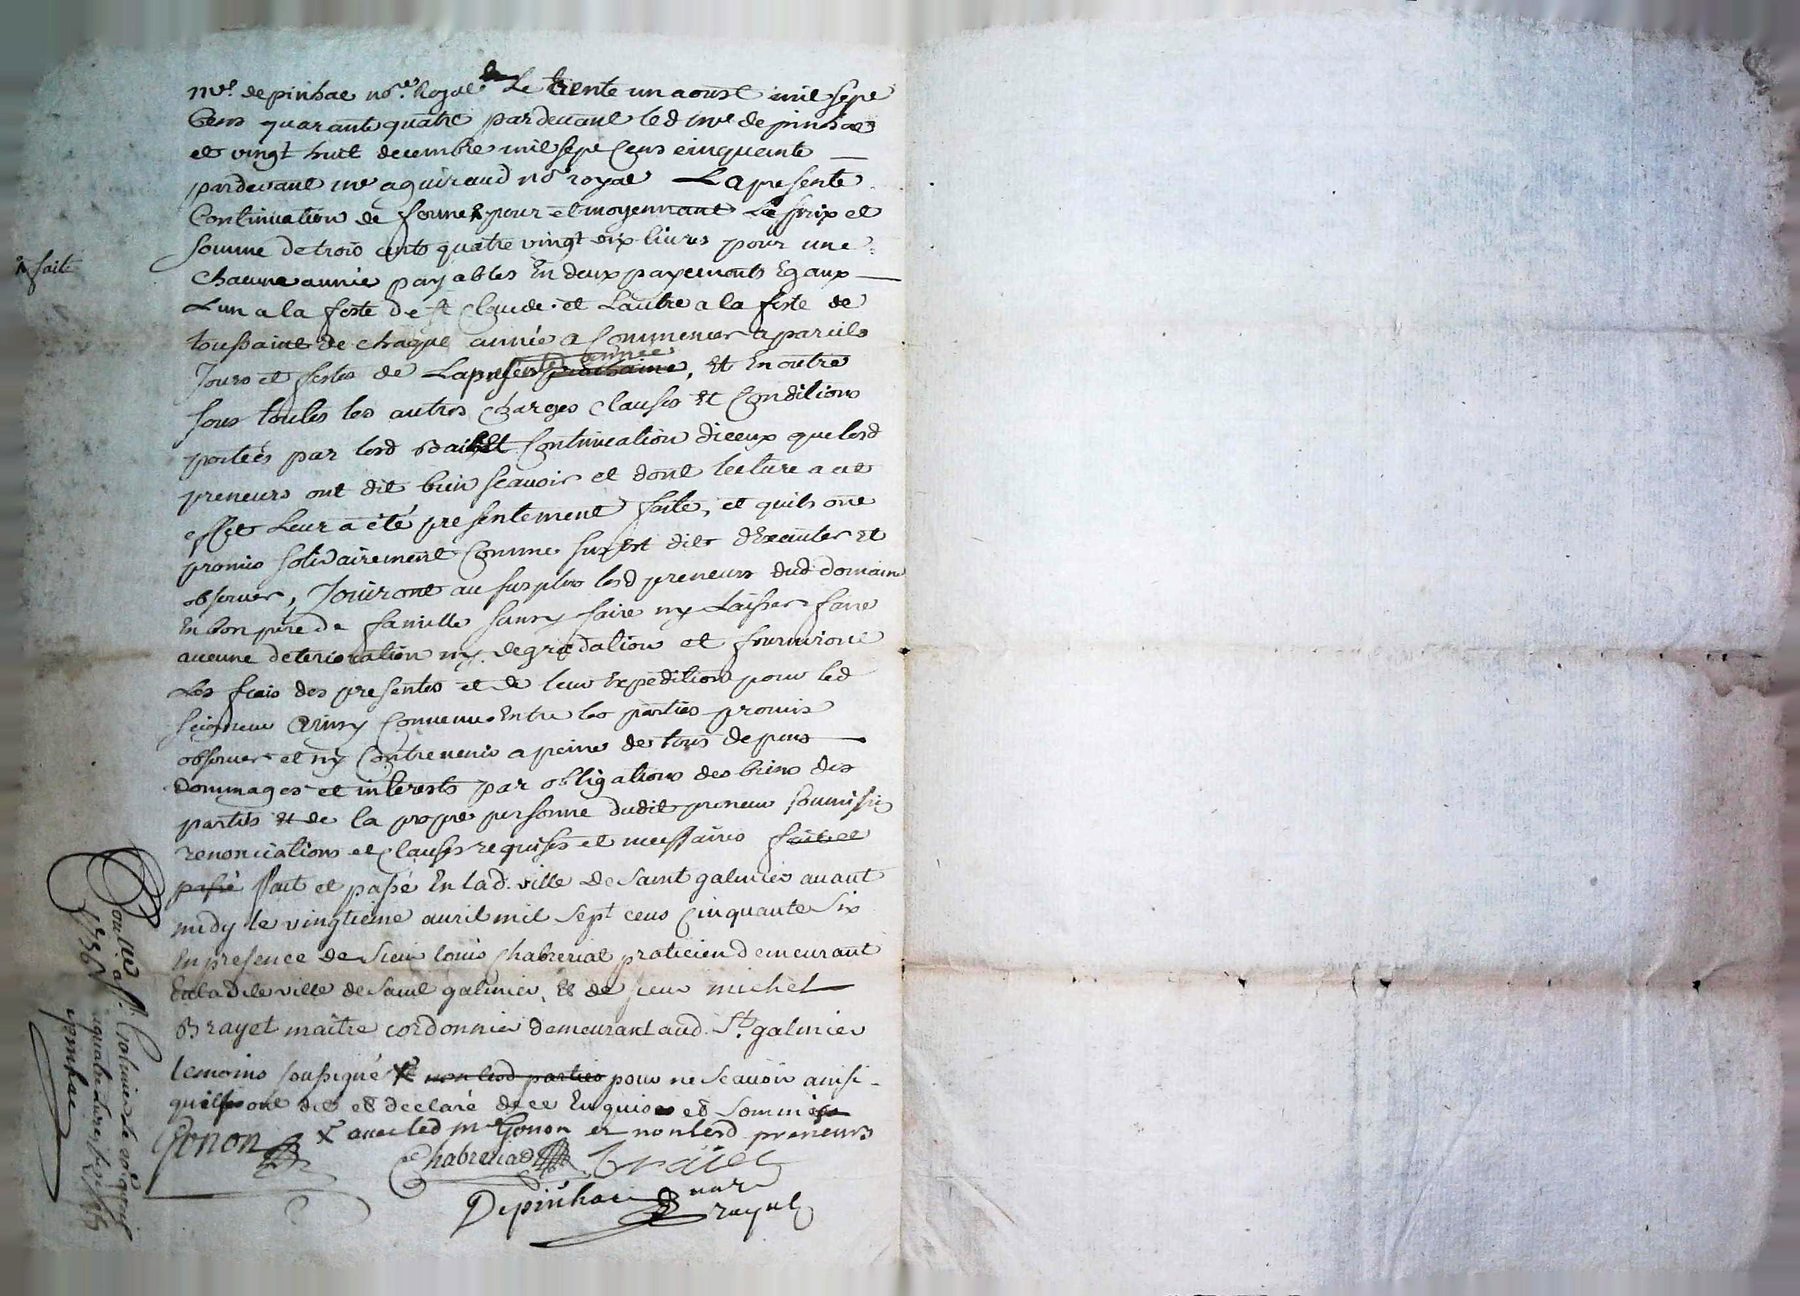 me. depinhac nore. Royal Le trente un aoust mil sept
Cens quarante quatre pardevant led me depinhac
et vingt huit decembre mil sept Cens cinquante
pardevant me aguiraud no royal La presente
Continuation de ferme pour et moyennant Le prix et
faite
somme de trois cents quatre vingt dix livres pour une
chacune année payables En deux payements Egaux
Lun a la feste de st Claude et Lautre a la feste de
toussaint de chaque année a Commencer a pareils
Jours et festes de Lapresente année prochaine, Et En outre
sous toutes les autres charges Clauses Et Conditions
portées par lesd Baih Et Continuation diceux que lesd
preneurs ont dit bien scavoir et dont lecture a cet
effet Leur a été presentement faite, et quils ont
promis solidairement Comme sus Est dit dExecuter Et
observer, Jouiront au surplus lesd preneurs dud domaine
En bon pere de famille sans y faire ny Laisser faire
aucune deterioration ny degradation et fourniront
Les frais des presentes et de leur Expedition pour led
seigneur Ainsy Convenu Entre les parties promis
observer et ny Contrevenir a peine de tous depens
dommages et interests par obligations des biens des
parties Et de la propre personne dudit preneur soumissions
renonciations et Clauses requises et necessaires fait et
passé fait et passé En lad. ville de Saint galmier avant
midy le vingtieme avril mil sept cens Cinquante Six
En presence de Sieur louis Chabrerial praticien demeurant
En ladite ville de Saint galmier, Et de sieur michel
Brayet maitre cordonnier demeurant aud. St. galmier
temoins soussigné X non lesd parties pour ne scavoir ainsi
quils ont dit et declaré de ce Enquis et Sommés
X avec led me Gonon et non lesd preneurs
Gonon
Chabrerial
Braiet
Depinhac
nore
royal
Controllé a St. Galmier Le
1756
quatre livres
Depinhac